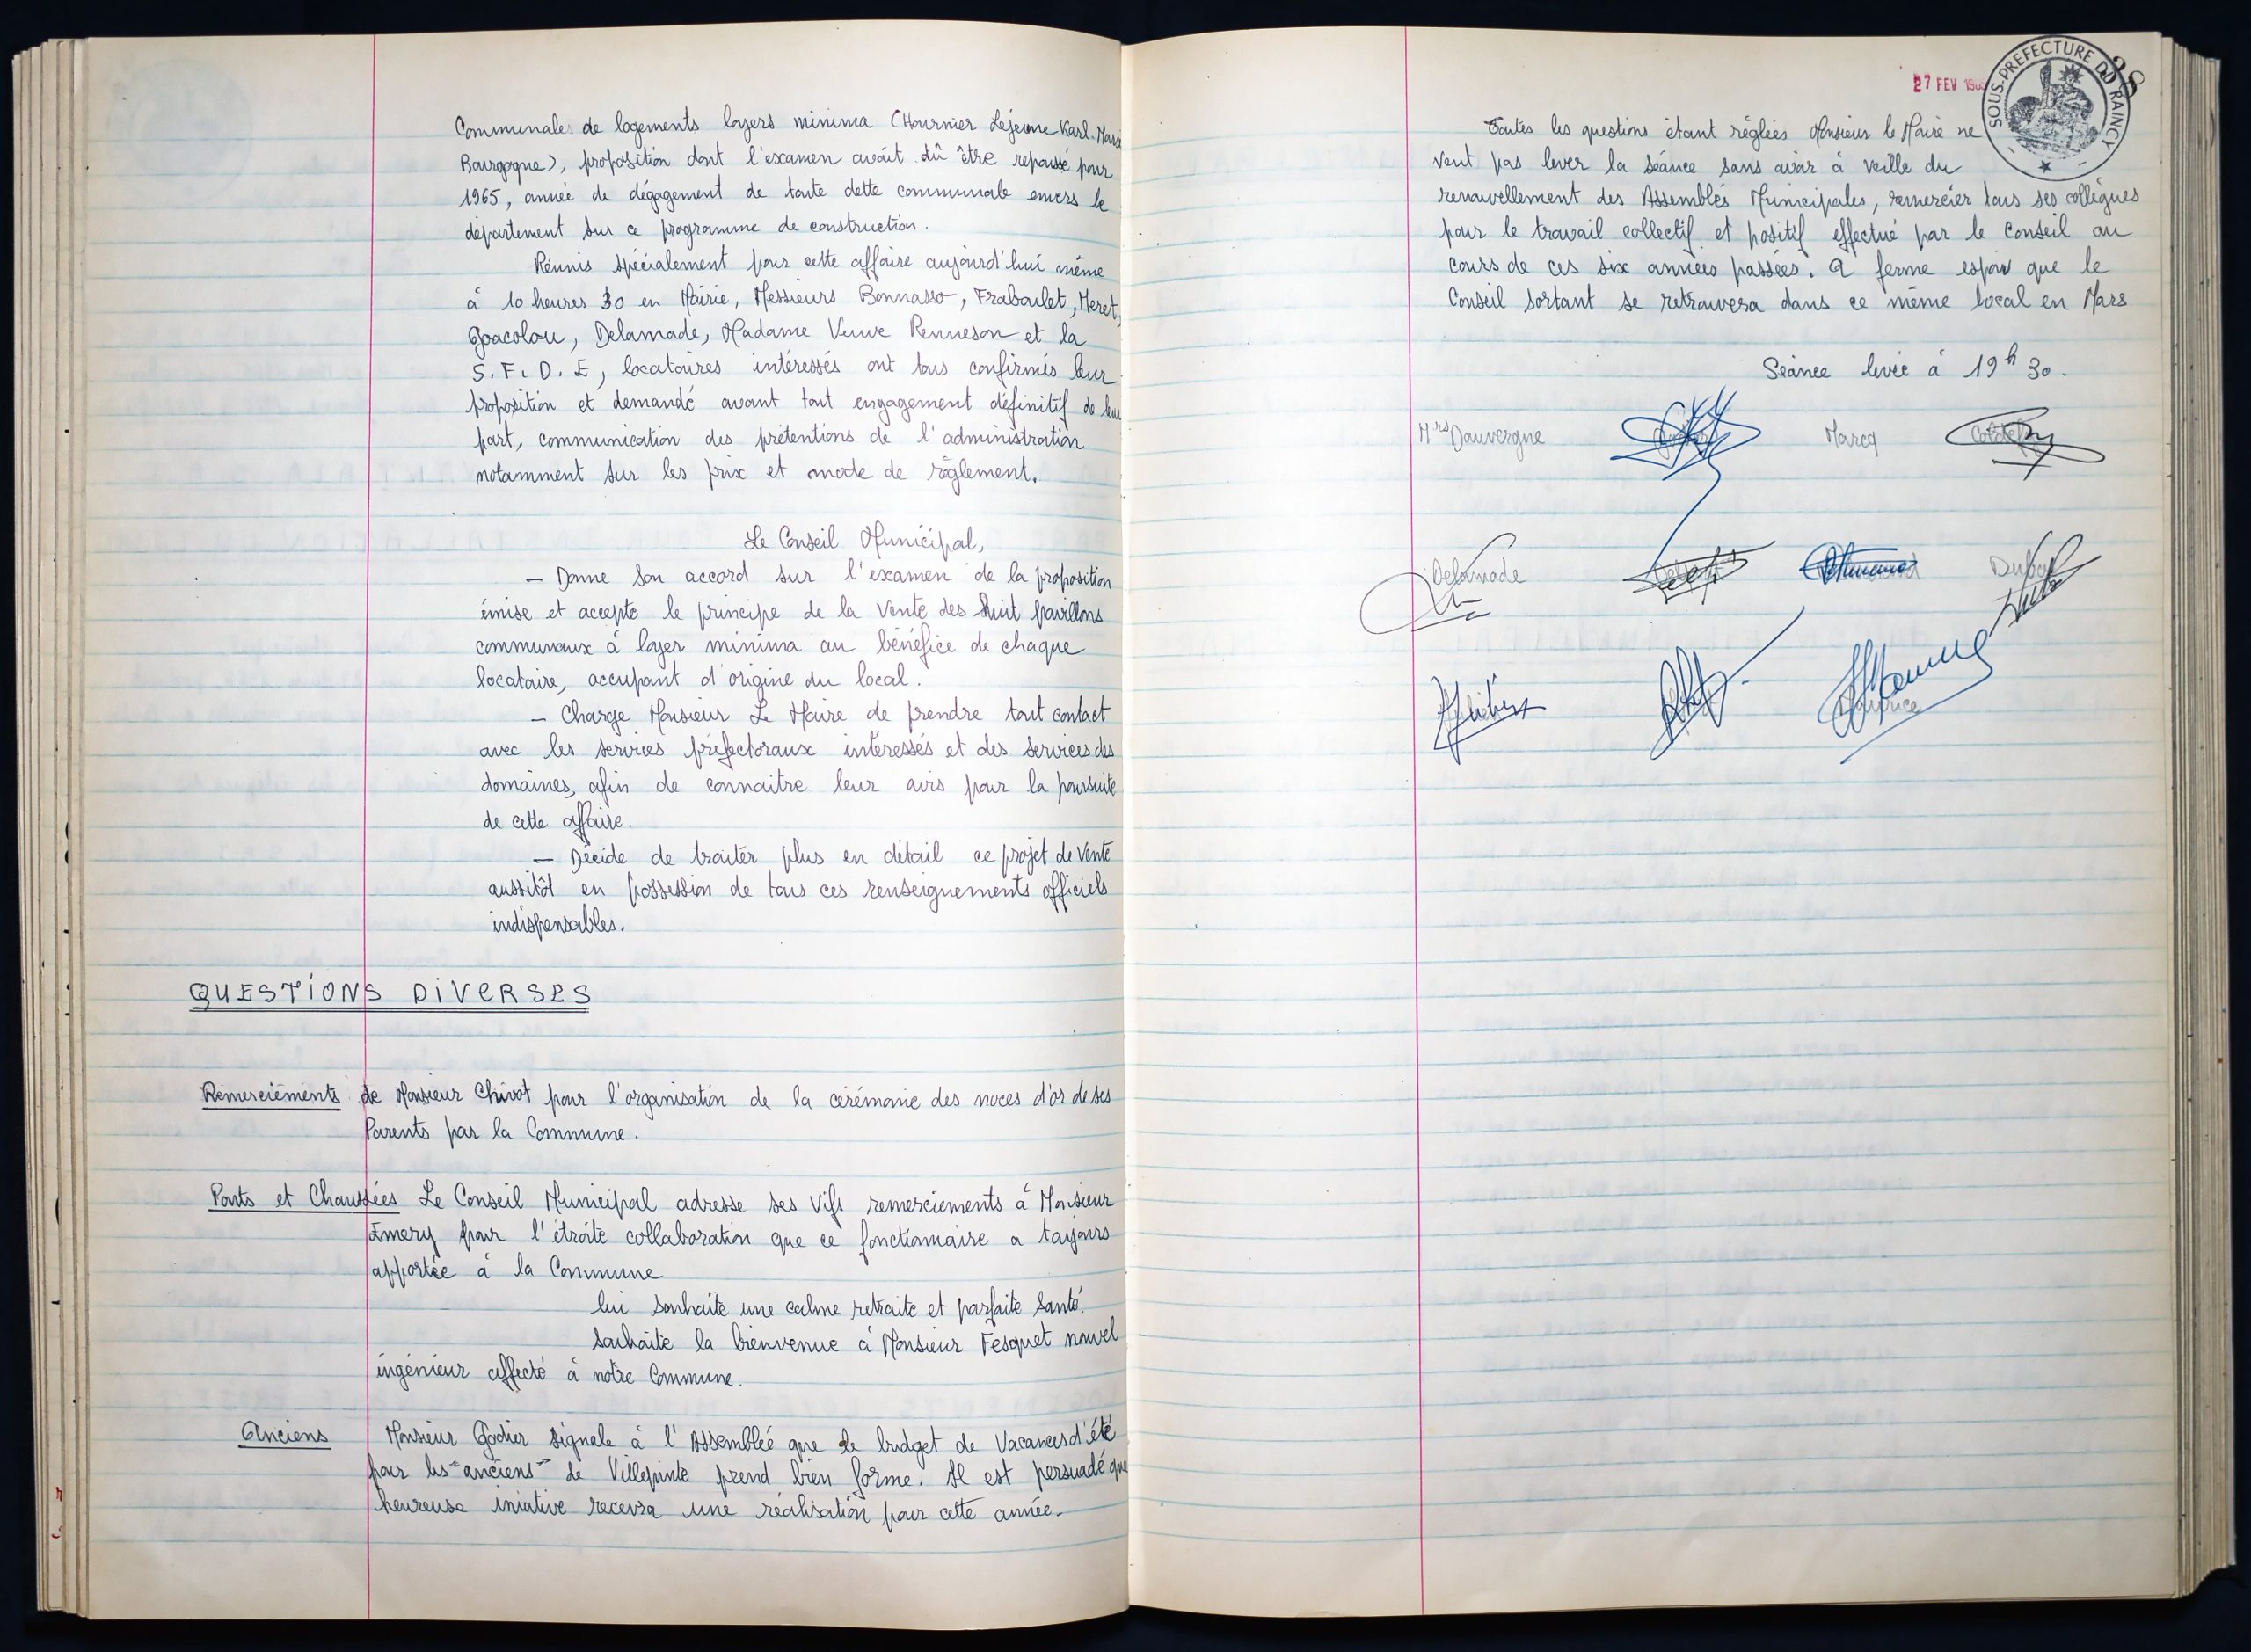 Communales de logements loyers minima (Fournier Lejeune Karl-Marx
Bourgogne), proposition dont l'examen avait dû être repoussé pour
1965, année de dégagement de toute dette communale envers le
département sur ce programme de construction.
Réunis spécialement pour cette affaire aujourd'hui même
à 10 heures 30 en Mairie, Messieurs Bonnasso, Fraboulet, Meret,
Goacolou, Delamade, Madame Veuve Renneson et la
S.F.D.E, locataires intéressés ont tous confirmés leur
proposition et demandé avant tout engagement définitif de leur
part, communication des prétentions de l'administration
notamment sur les prix et mode de règlement.
Le Conseil Municipal,
— Donne son accord sur l'examen de la proposition
émise et accepte le principe de la vente des huit pavillons
communaux à loyer minima au bénéfice de chaque
locataire, occupant d'origine du local.
— Charge Monsieur Le Maire de prendre tout contact
avec les services préfectoraux intéressés et des services des
domaines, afin de connaitre leur avis pour la poursuite
de cette affaire.
— Décide de traiter plus en détail ce projet de vente
aussitôt en possession de tous ces renseignements officiels
indispensables.
QUESTIONS DIVERSES
Remerciements de Monsieur Chivot pour l'organisation de la cérémonie des noces d'or de ses
Parents par la Commune.
Ponts et Chaussées Le Conseil Municipal adresse ses vifs remerciements à Monsieur
Emery pour l'étroite collaboration que ce fonctionnaire a toujours
apportée à la Commune
lui souhaite une calme retraite et parfaite santé.
souhaite la bienvenue à Monsieur Fesquet nouvel
ingénieur affecté à notre Commune.
Anciens Monsieur Godier signale à l'Assemblée que le budget de Vacances d'été
pour les "anciens" de Villepinte prend bien forme. Il est persuadé que
heureuse iniative recevra une réalisation pour cette année.
27 FEV
SOUS-PREFECTURE DU RAINCY
28
Toutes les questions étant réglées Monsieur le Maire ne
veut pas lever la séance sans avoir à veille du
renouvellement des Assemblés Municipales, remercier tous ses collègues
pour le travail collectif et positif effectué par le Conseil au
cours de ces six années passées. A ferme espoir que le
Conseil sortant se retrouvera dans ce même local en Mars
Séance levée à 19h30.
Mrs Dauvergne Marcq
Delamade